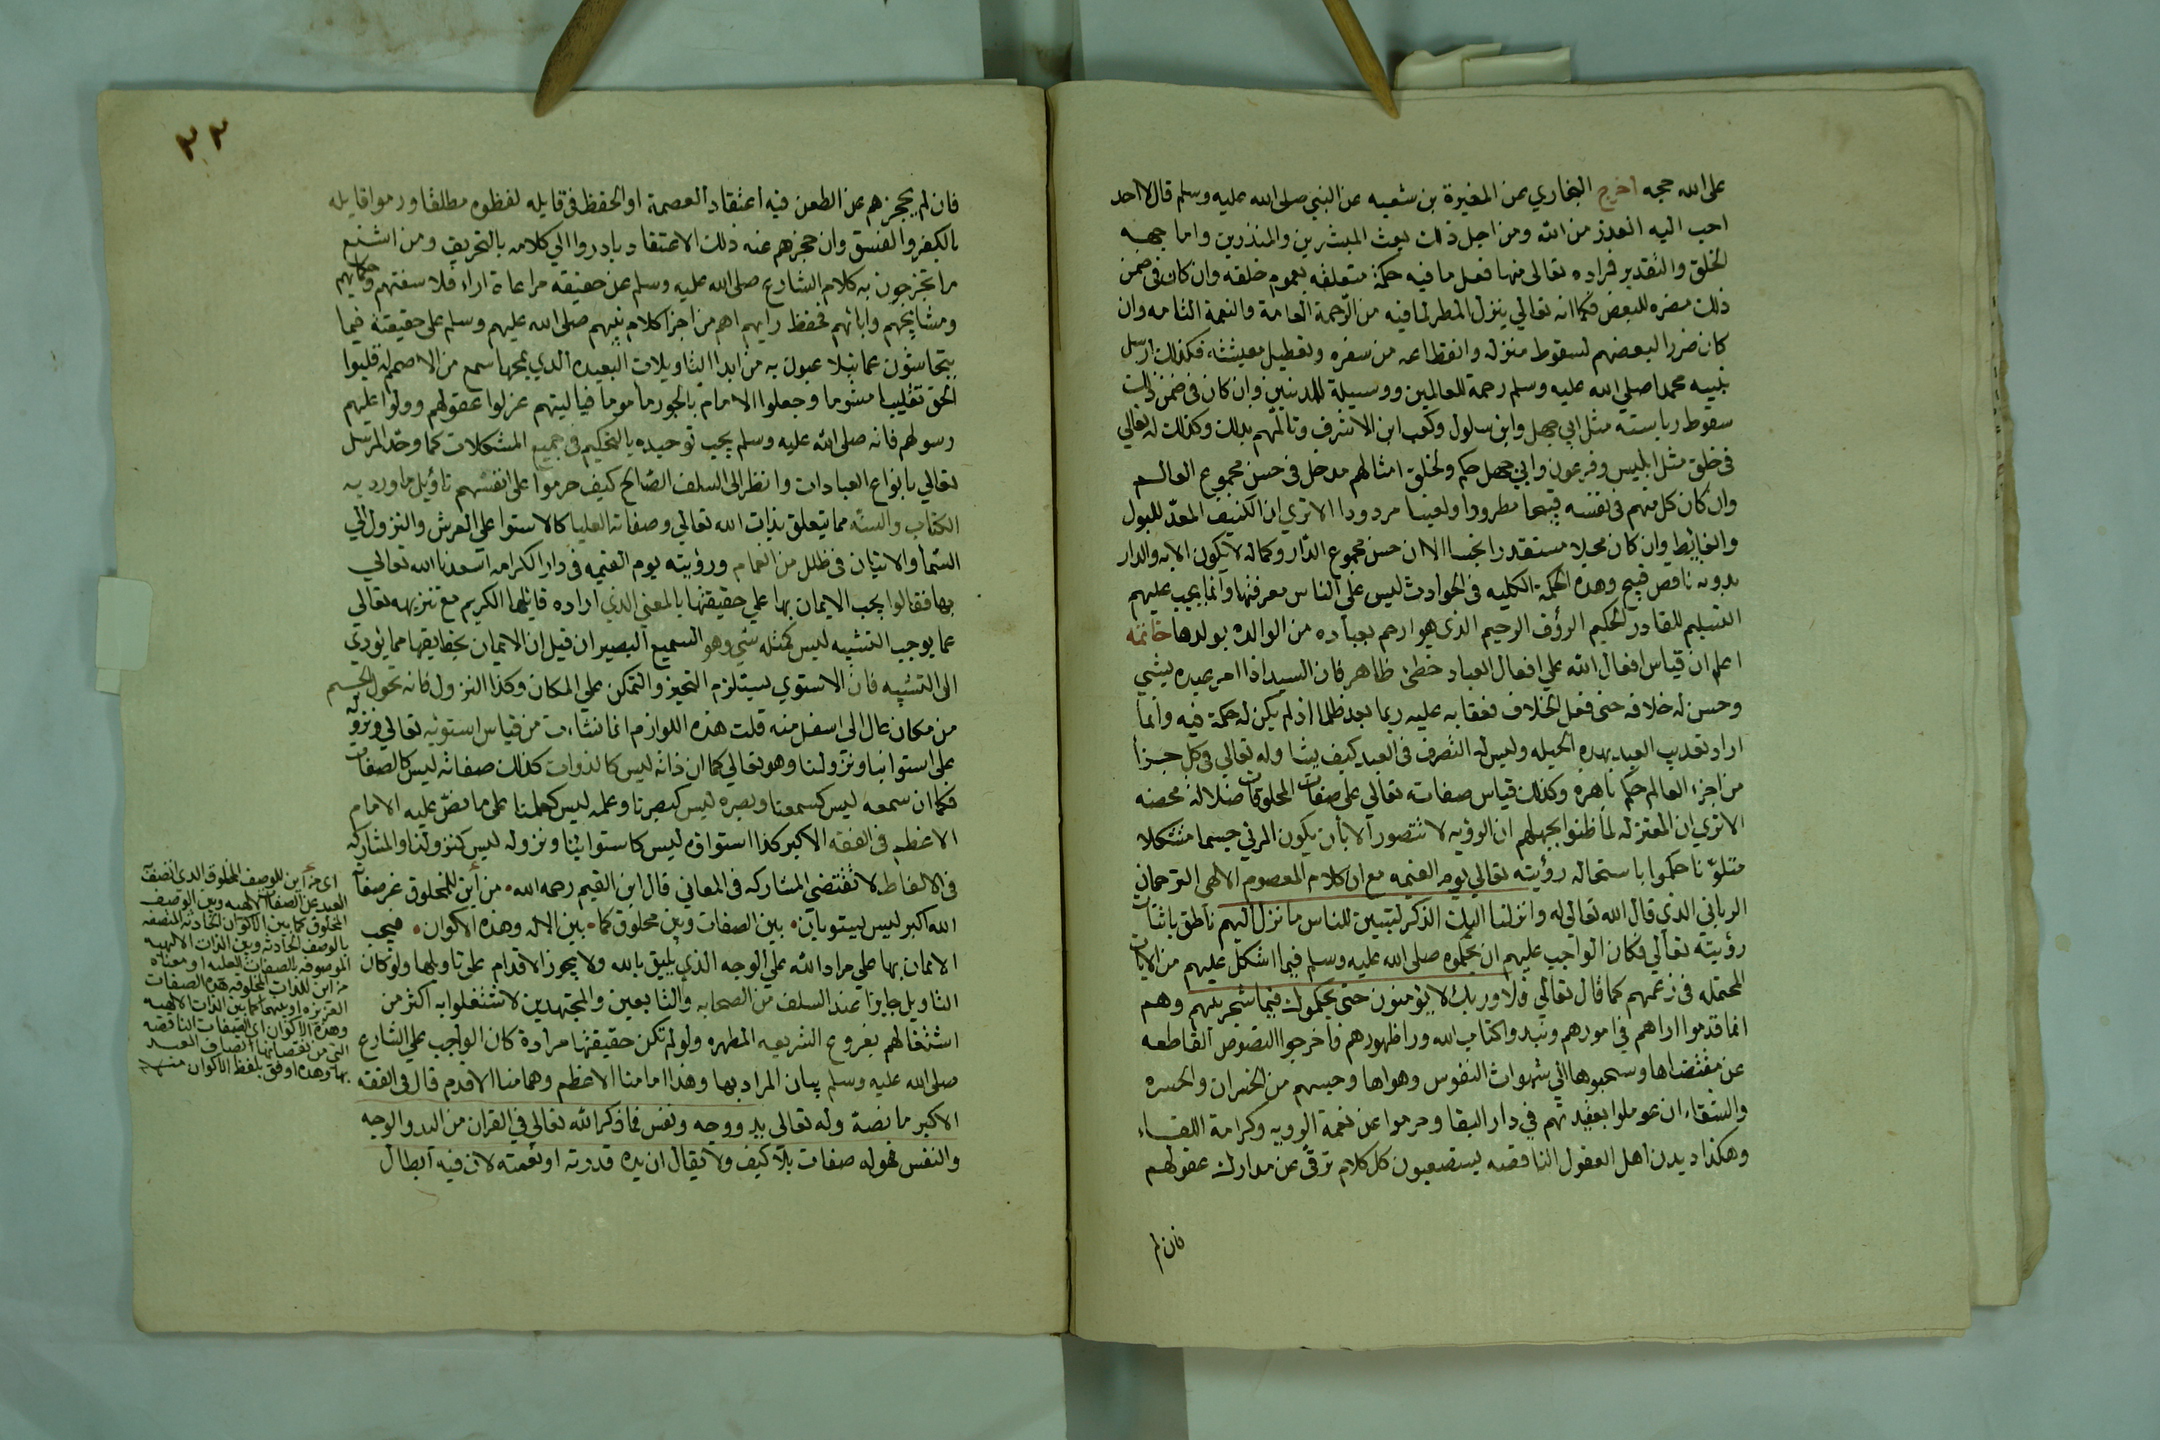 على الله حجه اخرج البخاري عن المغيرة بن شعبه عن النبي صلى الله عليه وسلم قال لا احد
احب اليه العذر من الله ومن اجل ذلك بعث المبشرين والمنذرين واما جهه
الخلق والتقدير فراده تعالى منها فعل ما فيه حكمة متعلقه بعموم خلقه وان كان في ضمن
ذلك مضره للبعض فكما انه تعالي ينزل المطر لما فيه من الرحمة العامة والنعمة التامه وان
كان ضررا لبعضهم لسقوط منزله وانقطاعه من سفره وتعطيل معيشته فكذلك ارسل
نبيه محمدا صلى الله عليه وسلم رحمة للعالمين ووسيلة للمدنيين وان كان في ضمن ذلك
سقوط رياسته مثل ابي جهل وابن سلول وكعب ابن الاشرف وتالمهم بذلك وكذلك له تعالي
في خلق مثل ابليس وفرعون وابي جهل حكم ولخلق امثالهم مدخل في حسن مجموع العالم
وان كان كل منهم في نفسه قبيحا مطرودا ولعينا مردودا الا تري ان الكنيف المعدّ للبول
والغايط وان كان محلا مستقدرا نجسا الا ان حسن مجموع الدار وكماله لا يكون الا به والدار
بدونه ناقص قبيح وهذه الحكمة الكليه في الحوادث ليس على الناس معرفتها وانما يجب عليهم
التسليم للقادر الحكيم الرؤف الرحيم الذي هو ارحم بعباده من الوالدة بولدها خاتمه
اعلم ان قياس افعال الله علي افعال العباد خطئ ظاهر فان السيد اذا امر عبده بشي
وحسن له خلافه حتى فعل الخلاف فعقابه عليه ربما يعد ظلما اذ لم يكن له حكمة فيه وانما
اراد تعديب العبد بهذه الحيله وليس له التصرف في العبد كيف يشا وله تعالي في كل جزا
من اجزء العالم حكم باهره وكذلك قياس صفاته تعالي على صفات المخلوقات ضلالة محضه
الا تري ان المعتزله لما ظنوا بجهلهم ان الرؤيه لا تتصور الا بأن يكون المرئي جسما متشكلا
متلوّنا حكموا باستحالة رؤيته تعالي يوم القيمه مع ان كلام المعصوم الالهي الترجمان
الرباني الذي قال الله تعالي له وانزلنا اليك الذكر لتبين للناس ما نزل اليهم ناطق باثبات
رؤيته تعالي فكان الواجب عليهم ان يحكموه صلى الله عليه وسلم فيما اشكل عليهم من الايات
المحتمله في زعمهم كما قال تعالي فلا وربك لا يؤمنون حتى يحكموك فيما شجر بينهم وهم
انما قدموا اراهم في امورهم ونبدوا كتاب الله ورا ظهورهم فاخرجوا النصوص القاطعه
عن مقتضاها وسحبوها الي شهوات النفوس وهواها وحسبهم من الخسران والحسره
والشقاء ان عوملوا بعقيدتهم في دار البقا وحرموا عن نعمة الرويه وكرامة اللقاء
وهكذا ديدن اهل العقول الناقصه يستصعبون كل كلام ترقى عن مدارك عقولهم
فان لم
٣٣
فان لم يحجزهم عن الطعن فيه اعتقاد العصمة او الحفظ في قايله لفظوه مطلقا ورموا قايله
بالكفر والفسق وان حجزهم عنه ذلك الاعتقاد بادروا الي كلامه بالتحريف ومن اشنع
ما يخرجون به كلام الشارع صلى الله عليه وسلم عن حقيقته مراعاة اراء فلاسفتهم وحكمايهم
ومشايخهم وابائهم فحفظ رايهم اهم من اجرا كلام نبيهم صلى الله عليهم وسلم على حقيقته فيما
يتحاشون عما يتلاعبون به من ابدا التاويلات البعيده الذي يمجها سمع من الاصم له قلبوا
الحق تقليبا مشوما وجعلوا الامام بالجور ماموما فياليتهم عزلوا عقولهم وولوا عليهم
رسولهم فانه صلى الله عليه وسلم يجب توحيده بالتحكيم في جميع المشكلات كما وحد المرسل
تعالي بانواع العبادات وانظر الى السلف الصالح كيف حرموا على انفسهم تأويل ما ورد به
الكتاب والسنه مما يتعلق بذات الله تعالي وصفاته العليا كالاستوا علي العرش والنزول الي
السما والاتيان في ظلل من الغمام ورؤيته يوم القيمه في دار الكرامه اسعدنا الله تعالي
بها فقالوا يجب الايمان بها علي حقيقتها بالمعني الذي اراده قائلها الكريم مع تنزيهه تعالي
عما يوجب التشبيه ليس كمثله شي وهو السميع البصير ان قيل ان الايمان بحقايقها مما يؤدي
الى التشبيه فان الاستوي يستلزم التحيز والتمكن علي المكان وكذا النزول فانه تحول الجسم
من مكان عال الى اسفل منه قلت هذه اللوازم انما نشات من قياس استوئه تعالي ونزوله
على استوائنا ونزولنا وهو تعالي كما ان ذاته ليس كالذوات كذلك صفاته ليس كالصفات
فكما ان سمعه ليس كسمعنا وبصره ليس كبصرنا وعلمه ليس كعلمنا على ما نصّ عليه الامام
الاعظم في الفقه الاكبر كذا استواؤه ليس كاستوائنا ونزوله ليس كنزولنا والمشاركه
في الالفاظ لا تقتضي المشاركه في المعاني قال ابن القيم رحمه الله • من أين للمخلوق عز صفا
الله اكبر ليس يستويان • بين الصفات وبين مخلوق كما • بين الاله وهذه الاكوان • فيجب
الايمان بها علي مراد الله علي الوجه الذي يليق بالله ولا يجوز الاقدام علي تاويلها ولو كان
التاويل جايزا عند السلف من الصحابه والتابعين والمجتهدين لاشتغلوا به اكثر من
اشتغالهم بفروع الشريعه المطهره ولو لم تكن حقيقتها مرادة كان الواجب على الشارع
صلى الله عليه وسلم بيان المراد بها وهذا امامنا الاعظم وهمامنا الاقدم قال في الفقه
الاكبر ما نصة وله تعالى يد ووجه ونفس فما ذكر الله تعالي في القران من اليد والوجه
والنفس فهو له صفات بلا كيف ولا يقال ان يده قدرته او نعمته لان فيه ابطال
اي من أين للوصف المخلوق الذي اتصف
العبد عن الصفات الالهيه وبين الوصف
المخلوق كما بين الاكوان الحادثة المتصفه
بالوصف الحادثه وبين الذات الالهيه
الموصوفه بالصفات العليه او معناه
من اين للذات المخلوقه هذه الصفات
العزيزه او بينهما كما بين الذات الالهيه
وهذه الاكوان اي الصفات الناقصه
التي من نقصانها اتصاف العبد
بها وهذه اوفق بلفظ الاكوان منهم